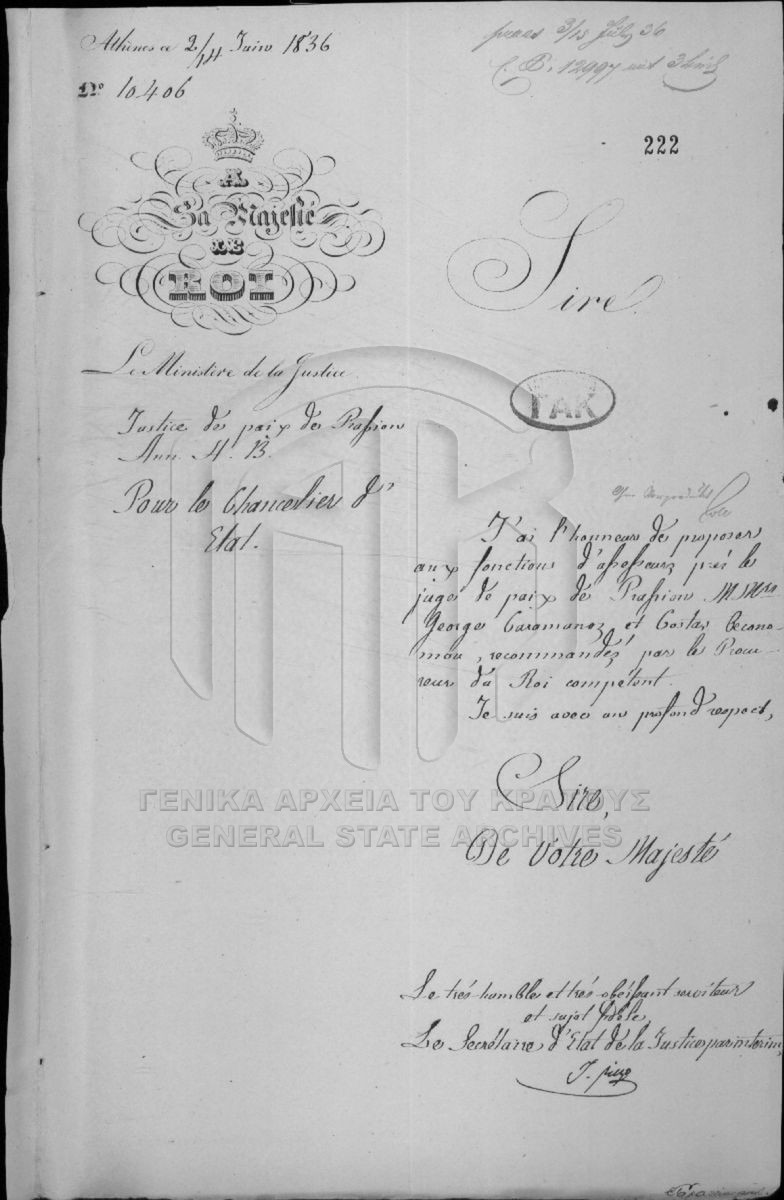 Athènes ce 2/14 Juin 1836
No 10406
222
A
Sa Majesté
LE
ROI
Sire
Le Ministère de la Justice
ΓΑΚ
Justice de paix de Prassion
Ann. A. B.
Pour le Chancelier d'
Etat.
J'ai l'honneur de proposer
aux fonctions d'assesseurs près le
juge de paix de Prassion
George et Costas Econo-
mou, recommandés par le Procu-
reur du Roi compétent.
Je suis avec un profond respect,
Sire,
De Votre Majesté
ΓΕΝΙΚΑ ΑΡΧΕΙΑ ΤΟΥ ΚΡΑΤΟΥΣ
GENERAL STATE ARCHIVES
Le très humble et très obéissant serviteur
et sujet fidèle,
Le Secrétaire d'Etat de la Justice par interim,